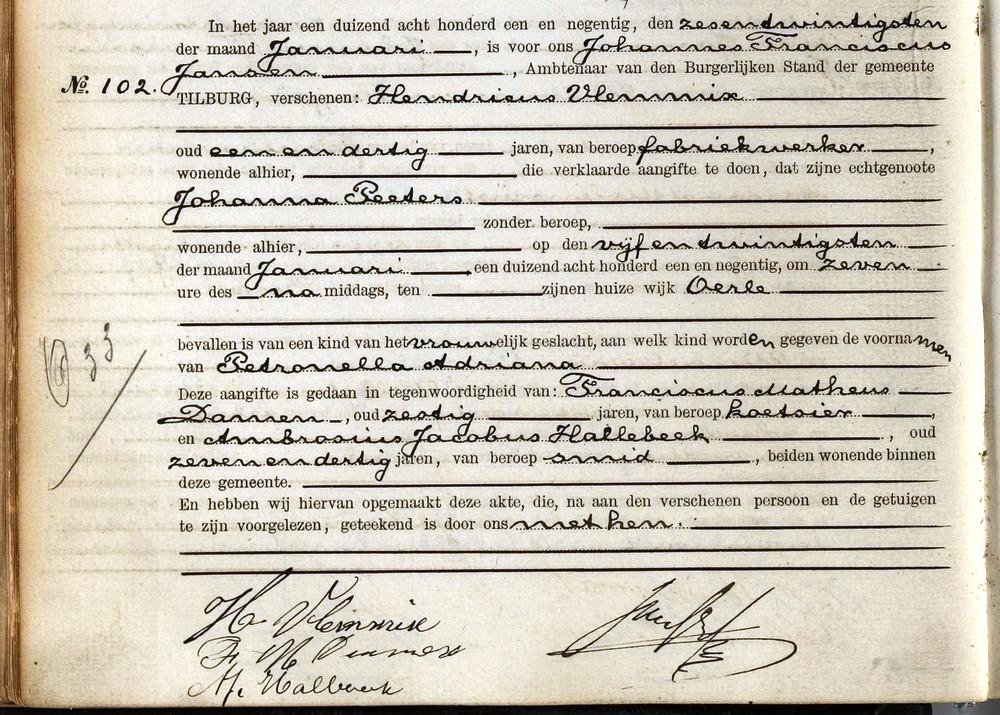 In het jaar een duizend acht honderd een en negentig, den zesentwintigsten
der maand Januari, is voor ons Johannes Franciscus
Jansen, Ambtenaar van den Burgerlijken Stand der gemeente
No. 102.
TILBURG, verschenen: Hendricus Vlemmix
oud een en dertig jaren, van beroep fabriekwerker,
wonende alhier, die verklaarde aangifte te doen, dat zijne echtgenoote
Johanna Peeters
zonder beroep,
wonende alhier, op den vijf en twintigsten
der maand Januari, een duizend acht honderd een en negentig, om zeven
ure des na middags, ten zijnen huize wijk Oerle
bevallen is van een kind van het vrouwelijk geslacht, aan welk kind worden gegeven de voornamen
van Petronella Adriana
33
Deze aangifte is gedaan in tegenwoordigheid van: Franciscus Matheus
Damen, oud zestig jaren, van beroep koetsier,
en Ambrosius Jacobus Hallebeek, oud
zeven en dertig jaren, van beroep smid, beiden wonende binnen
deze gemeente.
En hebben wij hiervan opgemaakt deze akte, die, na aan den verschenen persoon en de getuigen
te zijn voorgelezen, geteekend is door ons met hen.
H Vlemmix
F. M